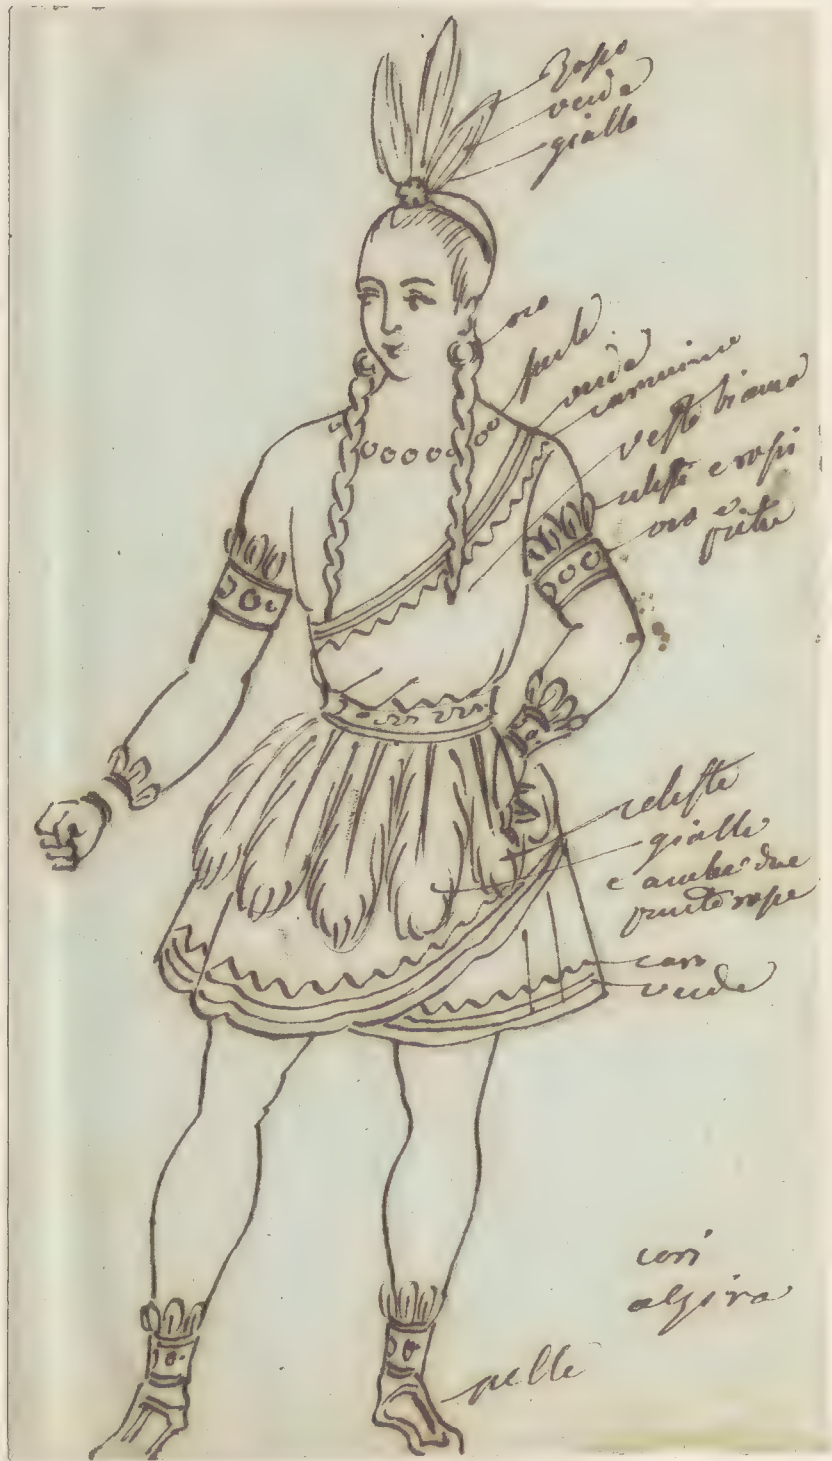 Rosso
verde
giallo
oro
perle
verde
veste bianca
celesti e rossi
oro e
pietre
celeste
gialle
e ambe due
punte rosse
verde
cori
alzira
pelle